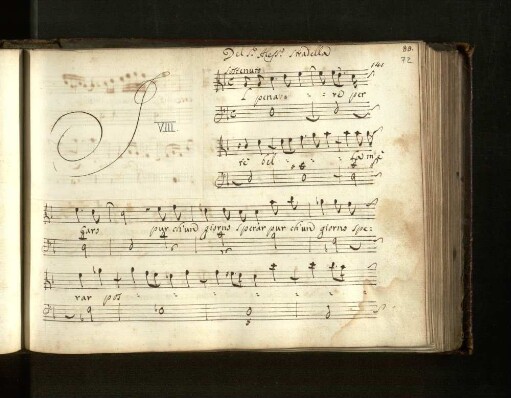 Del S.r Aless.o Stradella
88.
72
141
Sostenuto
VIII
Il penar per
te del
caro pur ch'un giorno sperar pur ch'un giorno spe:
rar pos